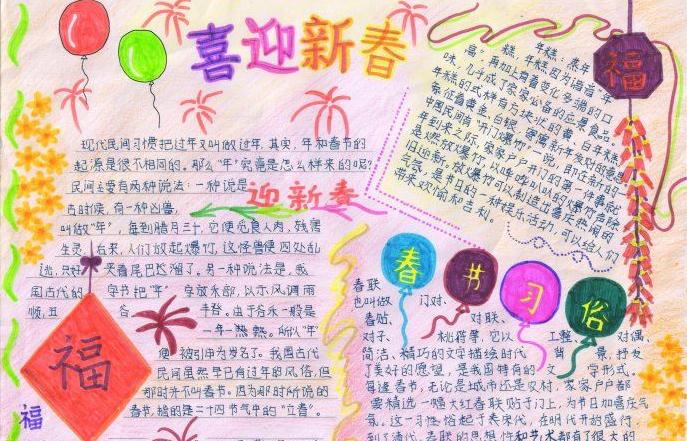 喜迎新春
现代民间习惯把过年又叫做过年.其实,年和春节的
起源是很不相同的。那么"年"究竟是怎么样来的呢?
民间主要有两种说法:一种说是
迎新春
古时候,有一种凶兽,
叫做"年",每到腊月三十,它便危食人肉,残害
生灵。后来,人们放起爆竹,这怪兽便四处乱
逃,只好夹着尾巴逃溜了。另一种说法是,我
国古代的字书把"年"字放禾部,以示风调雨
顺,五谷丰登。由于谷禾一般是
一年一熟。所以"年"
便被引申为岁名了。我国古代
民间虽然早已有过年的风俗,但
那时并不叫春节。因为那时所说的
春节,指的是二十四节气中的"立春"。
福
福
糕,年糕,蒸年
福
年糕,年糕因为谐音"年
高",再加上有着变化多端的口
味,几乎成了家家必备的应景食品。
年糕的式样有方块状的黄、白年糕,
象征着黄金、白银,寄寓新年发财的意思
中国民间有"开门爆竹"一说。即在新的一
年到来之际,家家户户开门的第一件事就
是燃放爆竹,以哔哔叭叭的爆竹声除
旧迎新。放爆竹可以创造出喜庆热闹的
气氛,是节日的一种娱乐活动,可以给人们
带来欢愉和吉利。
春节习俗
春联
也叫做门对、
春贴、对联、
对子、桃符等,它以工整、对偶、
简洁、精巧的文字描绘时代背景,抒发
了美好的愿望,是我国特有的文学形式。
每逢春节,无论是城市还是农村,家家户户都
要精选一幅大红春联贴于门上,为节日加喜庆气
氛。这一习性俗起于宋代,在明代开始盛行,
到了清代,春联的思想性和艺术都有了很大的